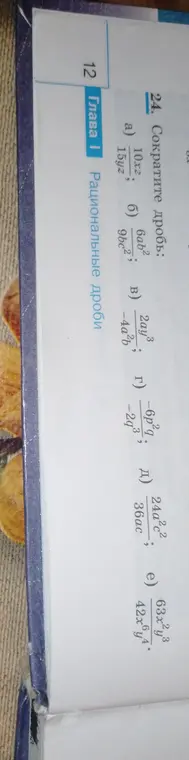 24. Сократите дробь:
а) 10xz/15yz; б) 6ab²/9bc²; в) 2ay³/-4a²b; г) -6p²q/-2q³; д) 24a²c²/36ac; е) 63x²y³/42x⁶y⁴.
12 Глава I Рациональные дроби